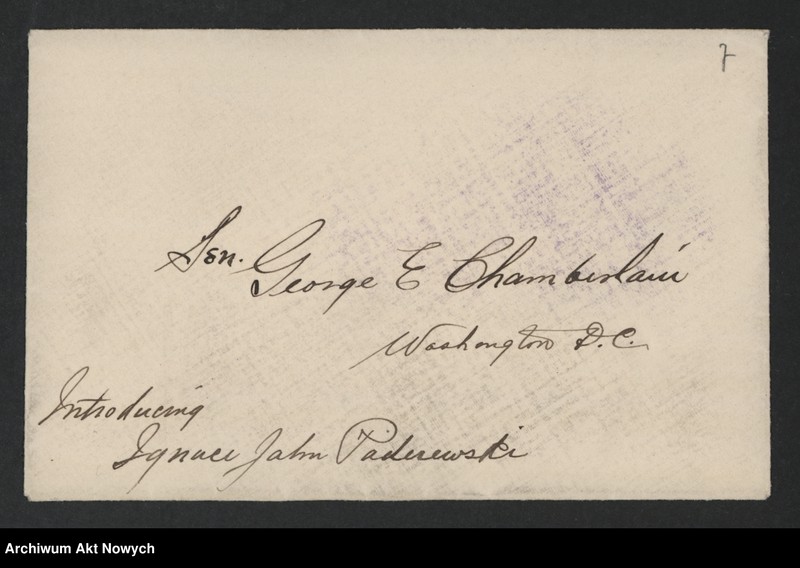 7
Sen. George E Chamberlain
Washington D.C.
Introducing
Ignace Jahn Paderewski
Archiwum Akt Nowych